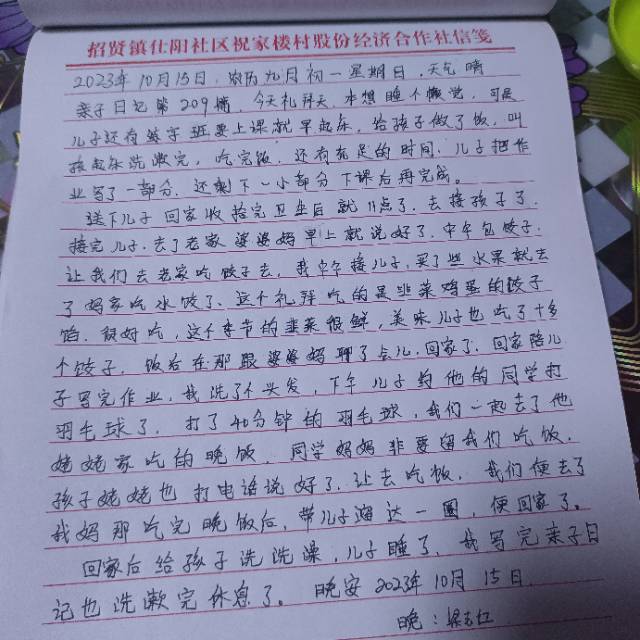 招贤镇仕阳社区祝家楼村股份经济合作社信笺
2023年10月15日.农历九月初一星期日.天气晴
亲子日记第209篇.今天礼拜天.本想睡个懒觉,可是
儿子还有练字班要上课就早起床,给孩子做了饭.叫
孩起床洗漱完,吃完饭.还有充足的时间.儿子把作
业写了一部分.还剩下一小部分下课后再完成。
送下儿子回家收拾完卫生后就11点了.去接孩子了.
接完儿子.去了老家婆婆妈早上就说好了.中午包饺子.
让我们去老家吃饺子去,我中午接儿子,买了些水果就去
了妈家吃水饺了.这个礼拜吃的是韭菜鸡蛋的饺子
馅.很好吃,这个季节的韭菜很鲜,美味儿子也吃了十多
个饺子.饭后在那跟婆婆妈聊了会儿.回家了.回家陪儿
子写完作业,我洗了个头发,下午儿子约他的同学打
羽毛球了.打了40分钟的羽毛球,我们一起去了他
姥姥家吃的晚饭.同学妈妈非要留我们吃饭.
孩子姥姥也打电话说好了.让去吃饭.我们便去了
我妈那吃完晚饭后,带儿子溜达一圈,便回家了。
回家后给孩子洗洗澡,儿子睡了.我写完亲子日
记也洗漱完休息了。晚安2023年10月15日.
晚: